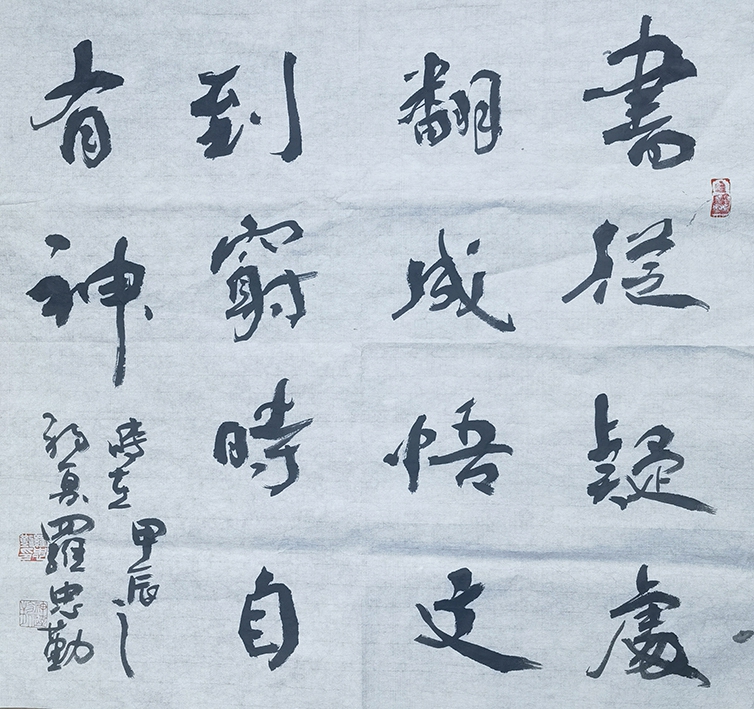 書從疑處
翻成悟文
到窮時自
有神
時在甲辰之
初夏羅忠勤